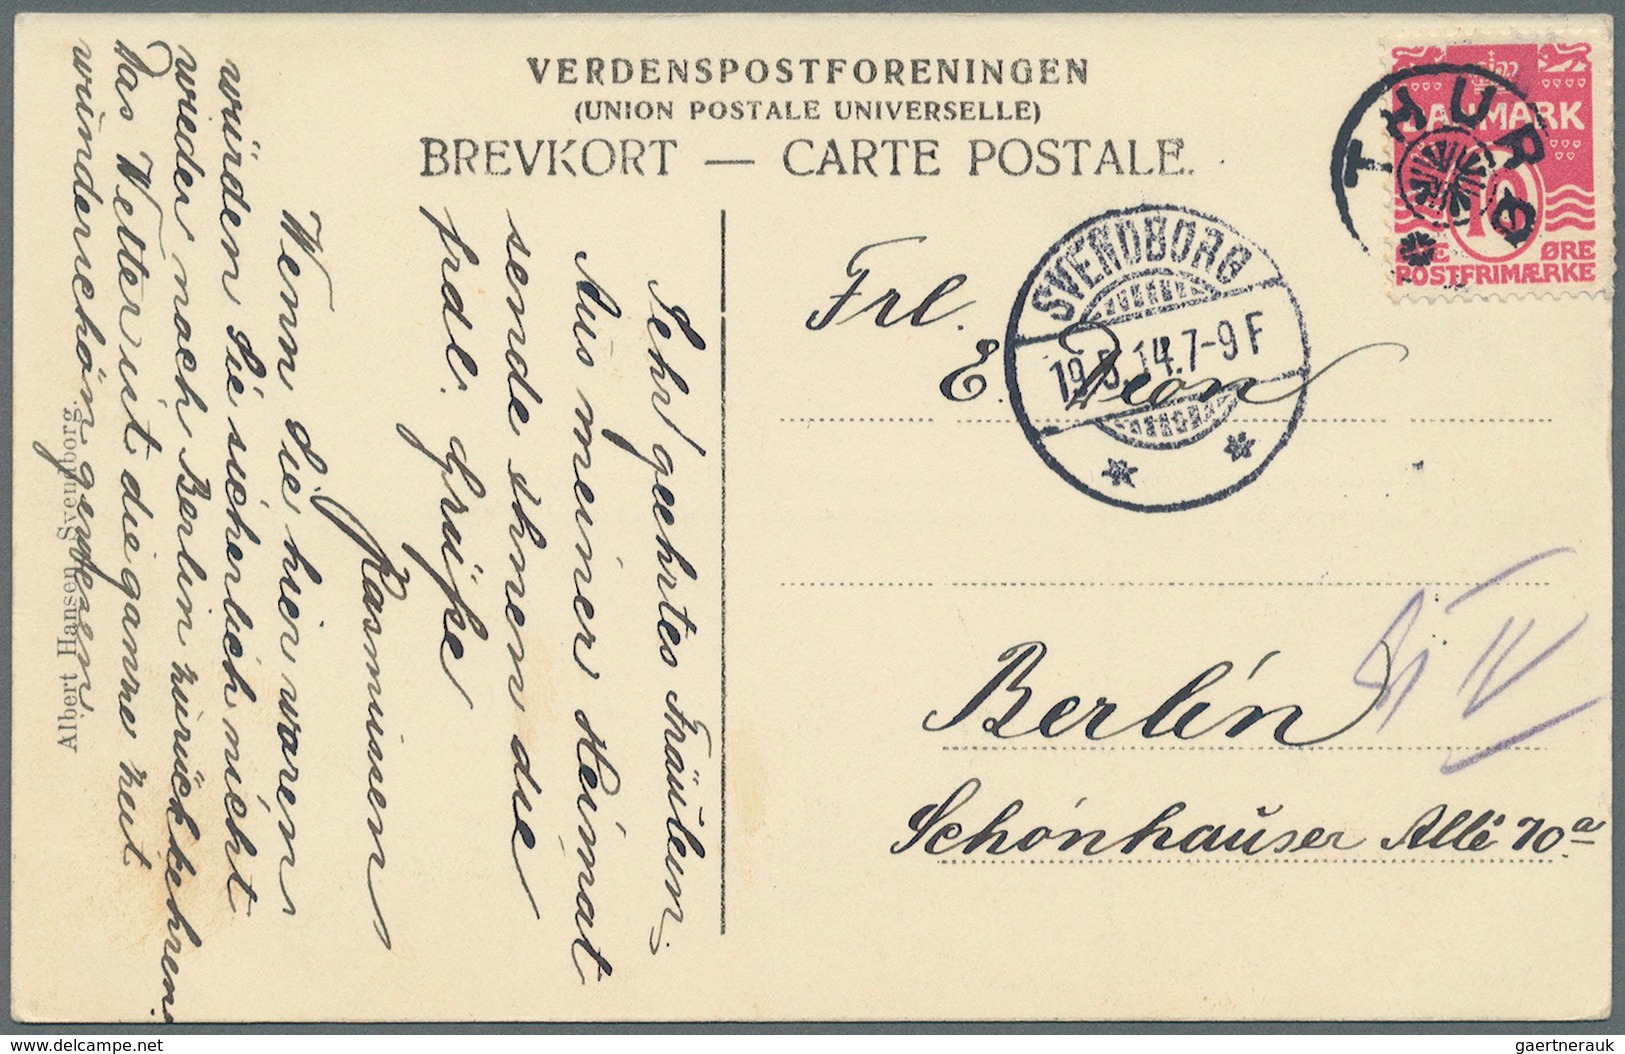 VERDENSPOSTFORENINGEN
(UNION POSTALE UNIVERSELLE)
BREVKORT — CARTE POSTALE.
THURØ
DANMARK
10
ØRE
POSTFRIMÆRKE
SVENDBORG
19.5.14.7-9 F
Frl.
E.
Berlín
Schönhauser Allé 70a
IV
Sehr geehrtes Fräulein.
Aus meiner Heimat
sende ihnen die
frdl. Grüße
Rasmussen
Wenn Sie hier waren
würden Sie sicherlich nicht
wieder nach Berlin zurückkehren.
Das Wetter ist die ganze Zeit
wunderschön gewesen
Albert Hansen, Svendborg.
www.delcampe.net
gaertnerauk